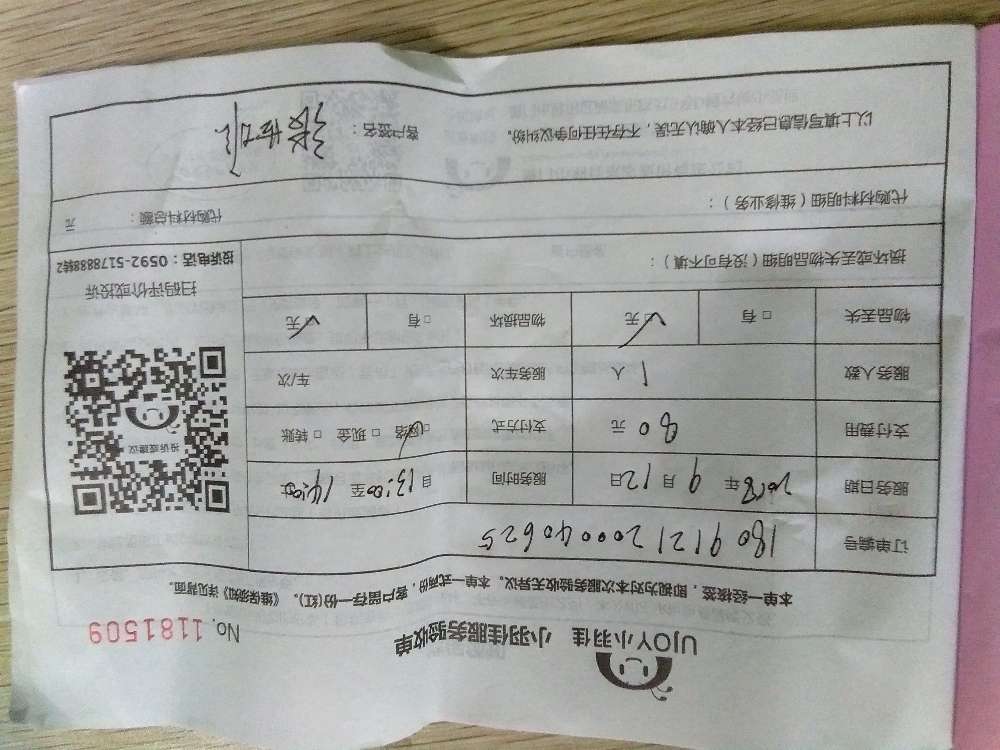 UJOY小羽佳 小羽佳服务验收单
No. 1181509
本单一经核签，即视为对本次服务验收无异议。本单一式两份，客户留存一份(红)。《维保须知》详见背面。
订单编号 18091212000040625
服务日期 2018年 9月 12日 服务时间 自 13:00 至 14:00 止
支付费用 80 元 支付方式 ☑网络 □现金 □转账
服务人数 1 人 服务车次 车/次
物品丢失 □有 ☑无 物品损坏 □有 ☑无
投诉或建议
扫码评价或投诉
投诉电话：0592-5178888转2
损坏或丢失物品明细（没有可不填）：
代购材料明细（维修业务）： 代购材料总额： 元
以上填写信息已经本人确认无误，不存在任何争议纠纷。 客户签名：